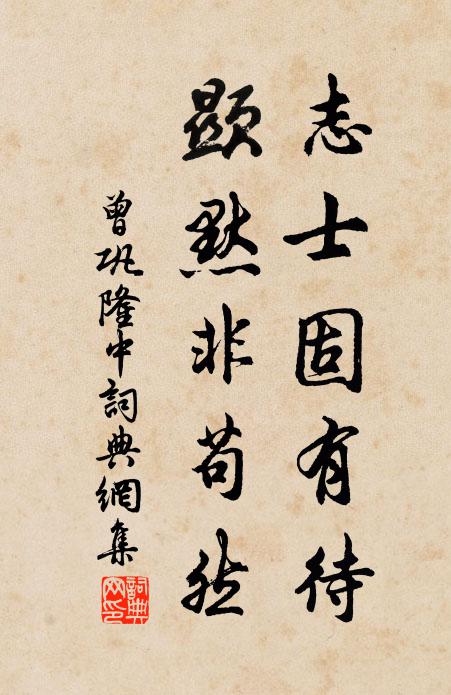 志士固有待
顯默非苟然
曾巩隆中詞典網集
詞典網印